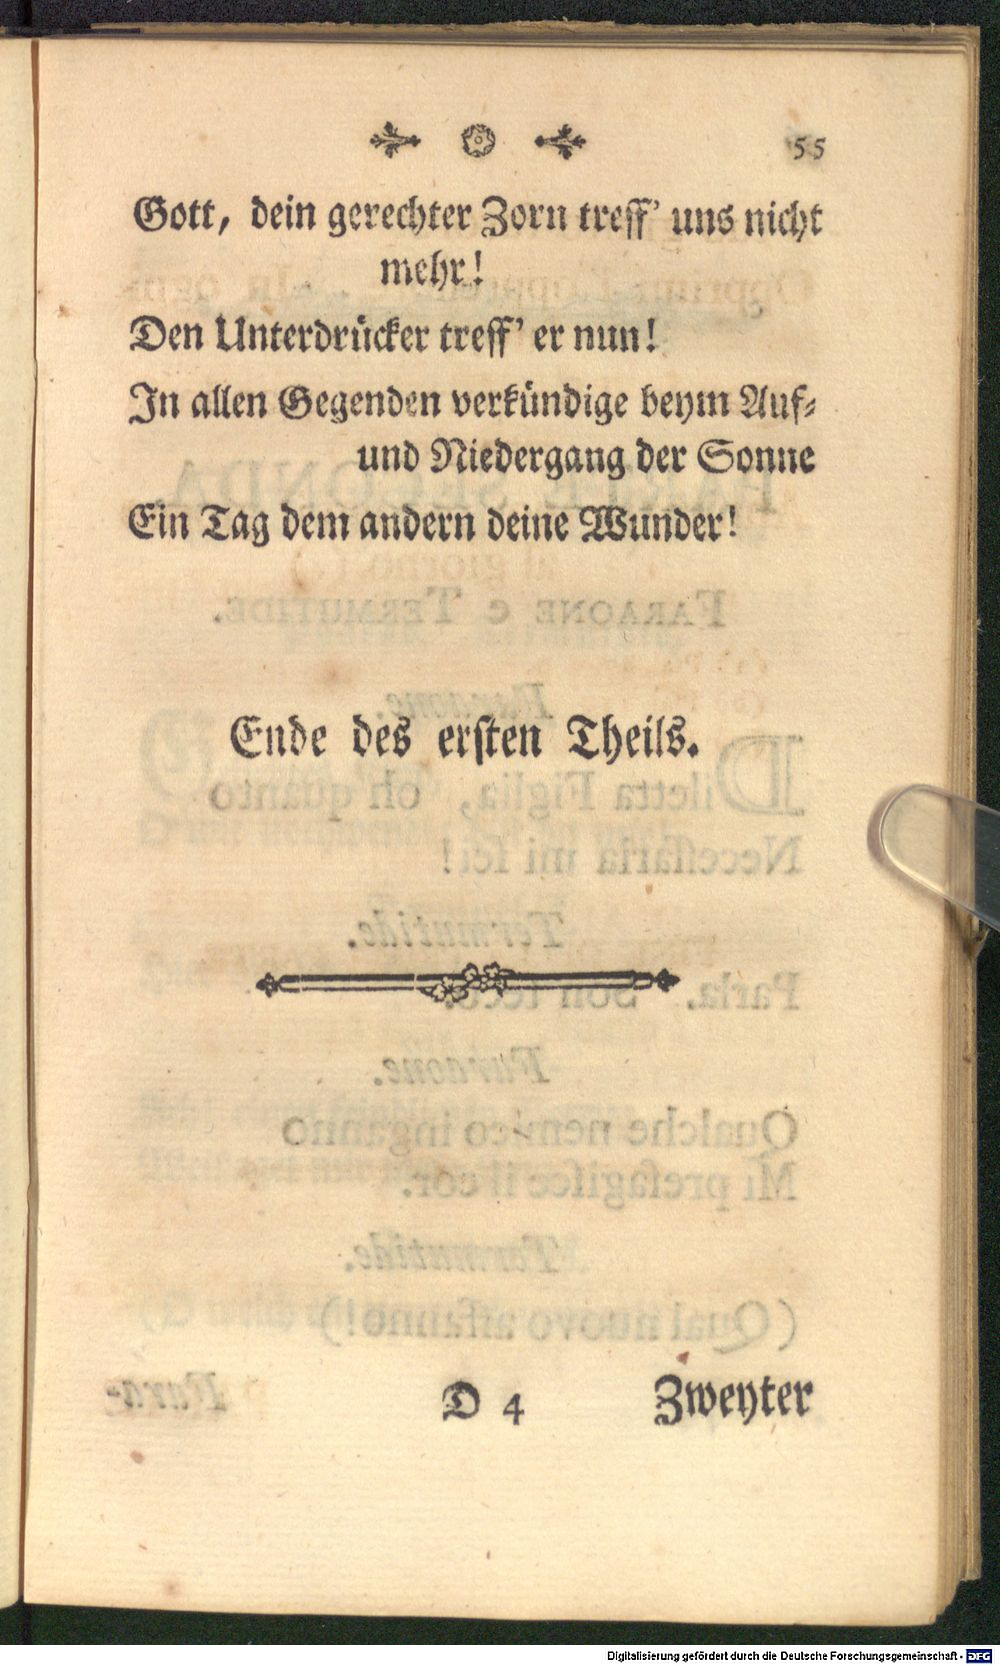 55
Gott, dein gerechter Zorn treff' uns nicht
mehr!
Den Unterdrücker treff' er nun!
In allen Gegenden verkündige beym Auf-
und Niedergang der Sonne
Ein Tag dem andern deine Wunder!
Ende des ersten Theils.
D 4
Zweyter
Digitalisierung gefördert durch die Deutsche Forschungsgemeinschaft - DFG